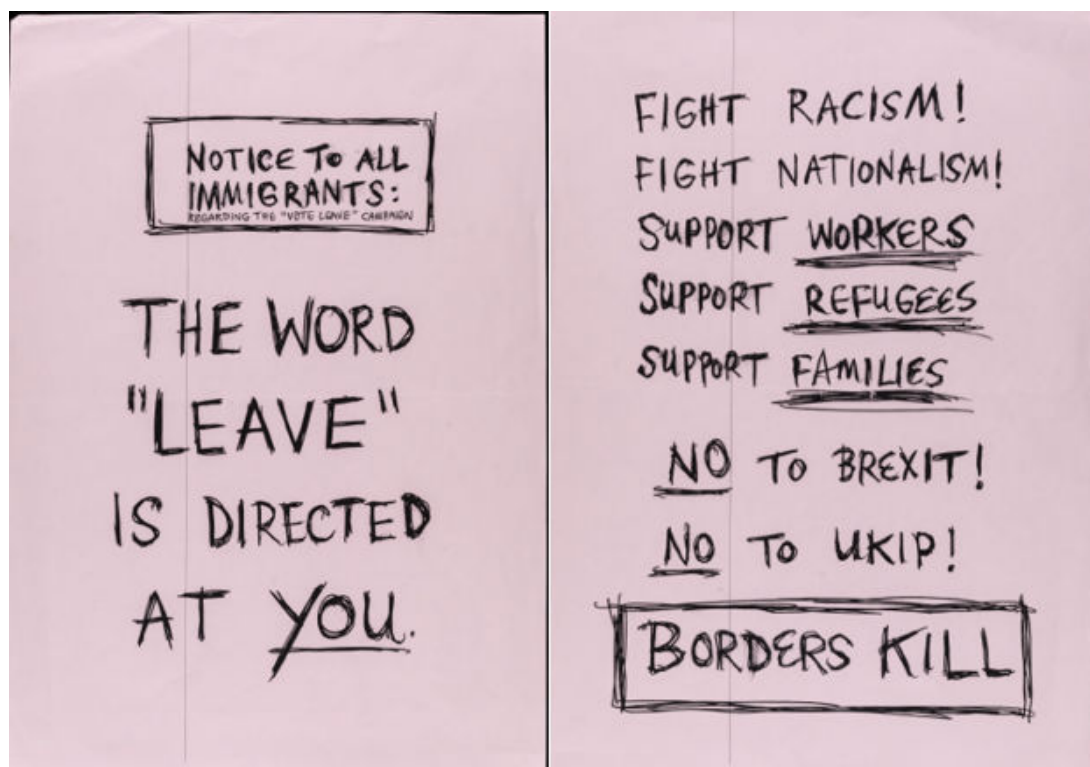 NOTICE TO ALL
IMMIGRANTS:
REGARDING THE "VOTE LEAVE" CAMPAIGN
THE WORD
"LEAVE"
IS DIRECTED
AT YOU.
FIGHT RACISM!
FIGHT NATIONALISM!
SUPPORT WORKERS
SUPPORT REFUGEES
SUPPORT FAMILIES
NO TO BREXIT!
NO TO UKIP!
BORDERS KILL